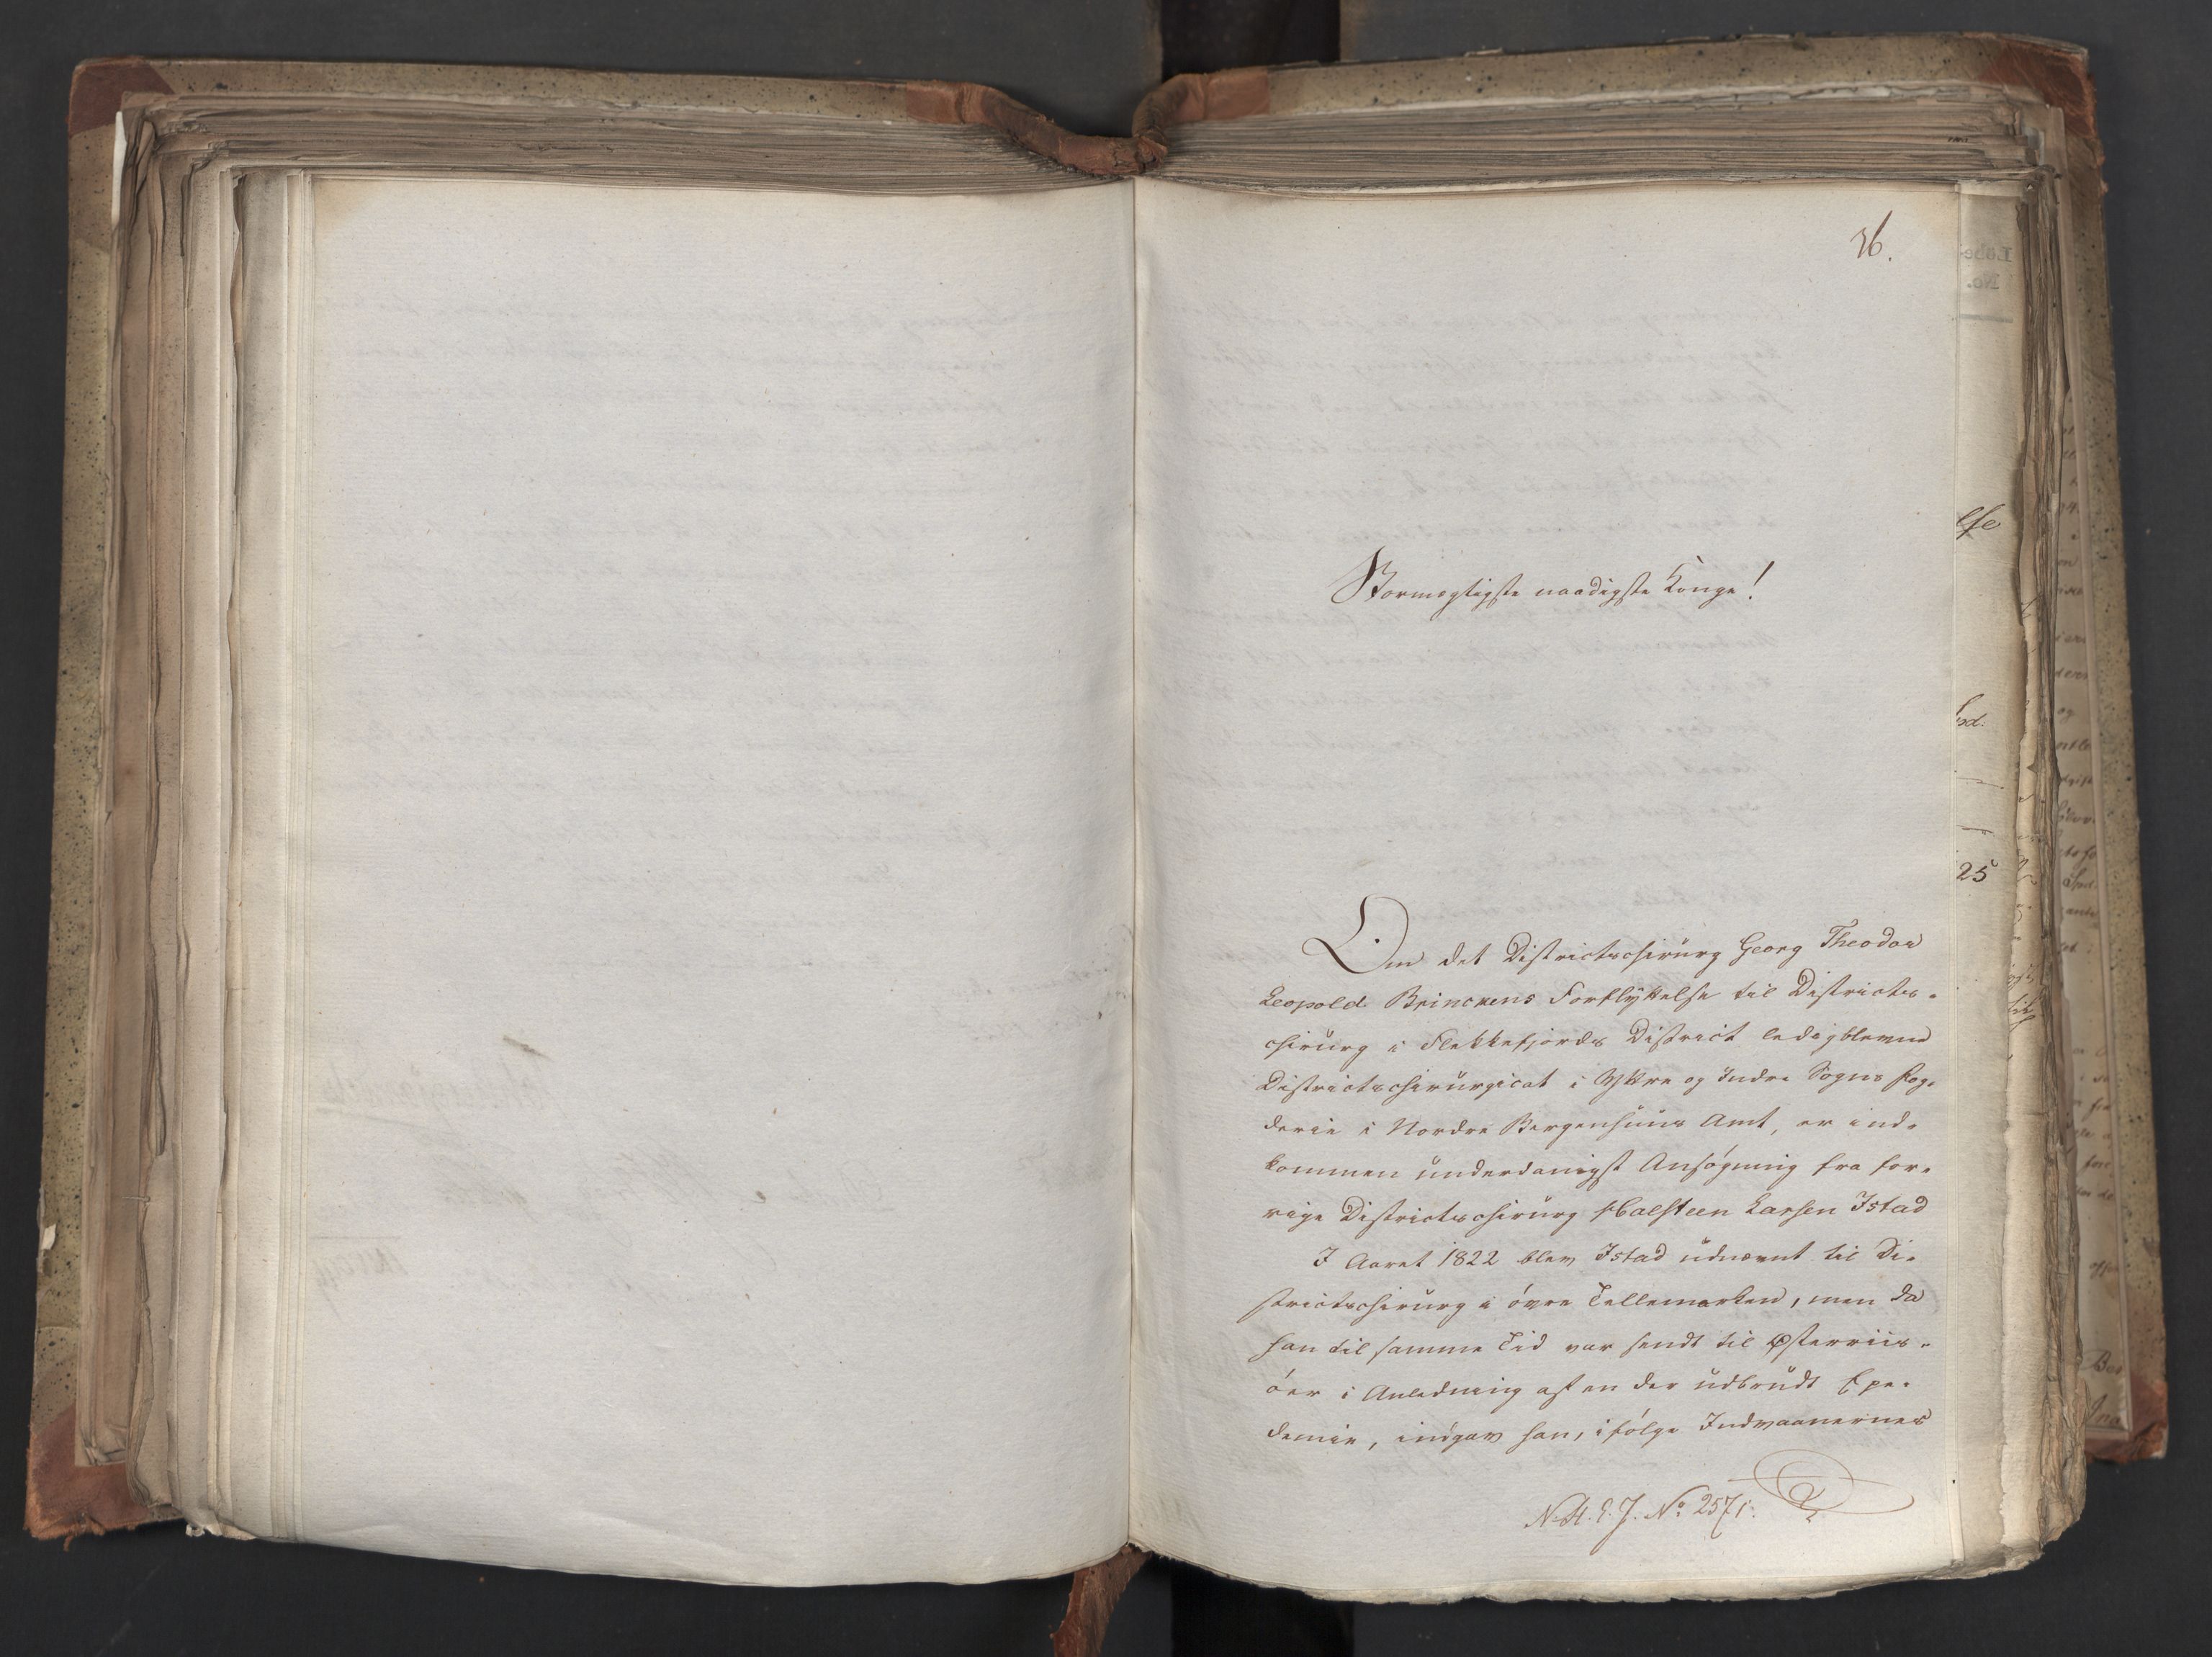 26.
Stormægtigste naadigste Konge!
Om det Districtschirurg Georg Theodor
Leopold Brinckens Forflyttelse til Districts-
chirurg i Flekkefjords District ledigblevne
Districtschirurgicat i Yttre og Indre Sogns Fog-
derie i Nordre Bergenhuus Amt, er ind-
kommen underdanigst Ansøgning fra for-
rige Districtschirurg Halsteen Larsen Istad
I Aaret 1822 blev Istad udnævnt til Di-
strictschirurg i øvre Tellemarken, men da
han til samme Tid var sendt til Østerriis-
öer i Anledning af en der udbrudt Epe-
demie, indgav han, ifølge Indvaanernes
N.H.E.J. No 2571.
Löbe
No.
else
25